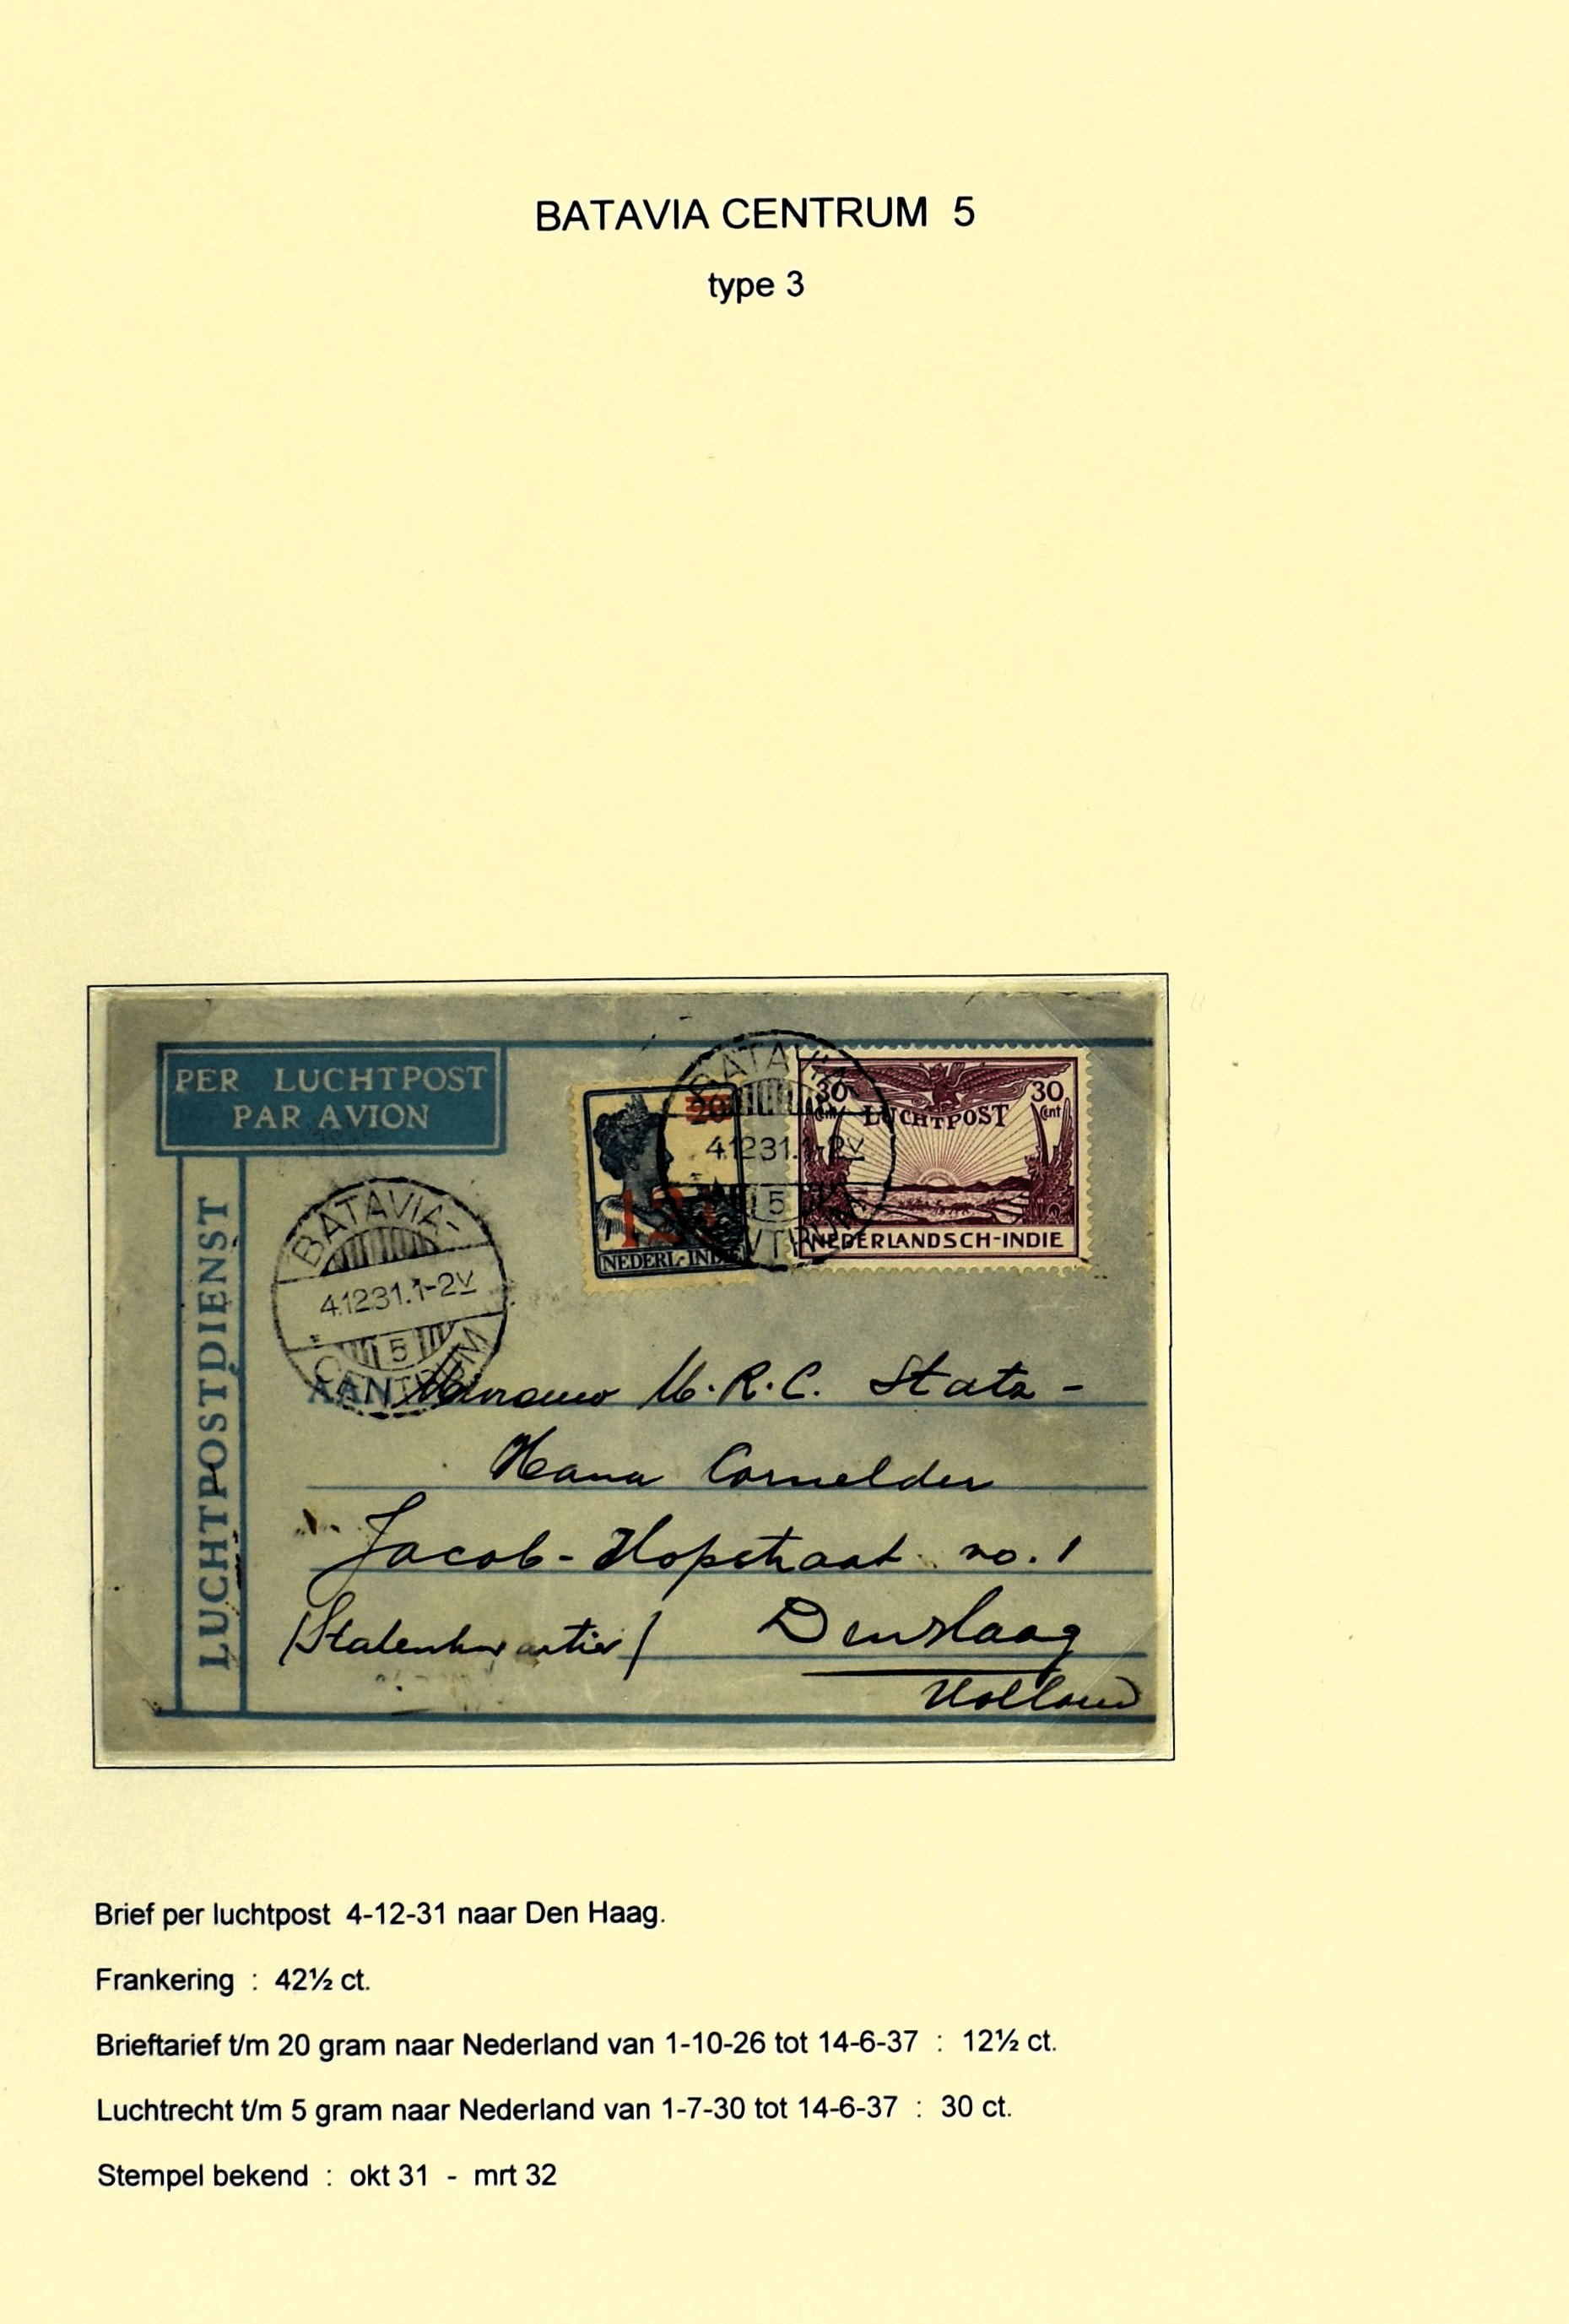 BATAVIA CENTRUM 5
type 3
PER LUCHTPOST
PAR AVION
LUCHTPOSTDIENST
BATAVIA-
4.12.31.1-2V
5
CENTRUM
20
12½
NEDERL-INDIE
BATAVIA
4.12.31.1-2V
5
CENTRUM
30 Cent
30 Cent
LUCHTPOST
NEDERLANDSCH-INDIE
AAN Mevrouw M.R.C. Stats-
Cornelder
Jacob-Hopstraat no. 1
(Statenkwartier) Den Haag
Holland
Brief per luchtpost 4-12-31 naar Den Haag.
Frankering : 42½ ct.
Brieftarief t/m 20 gram naar Nederland van 1-10-26 tot 14-6-37 : 12½ ct.
Luchtrecht t/m 5 gram naar Nederland van 1-7-30 tot 14-6-37 : 30 ct.
Stempel bekend : okt 31 - mrt 32